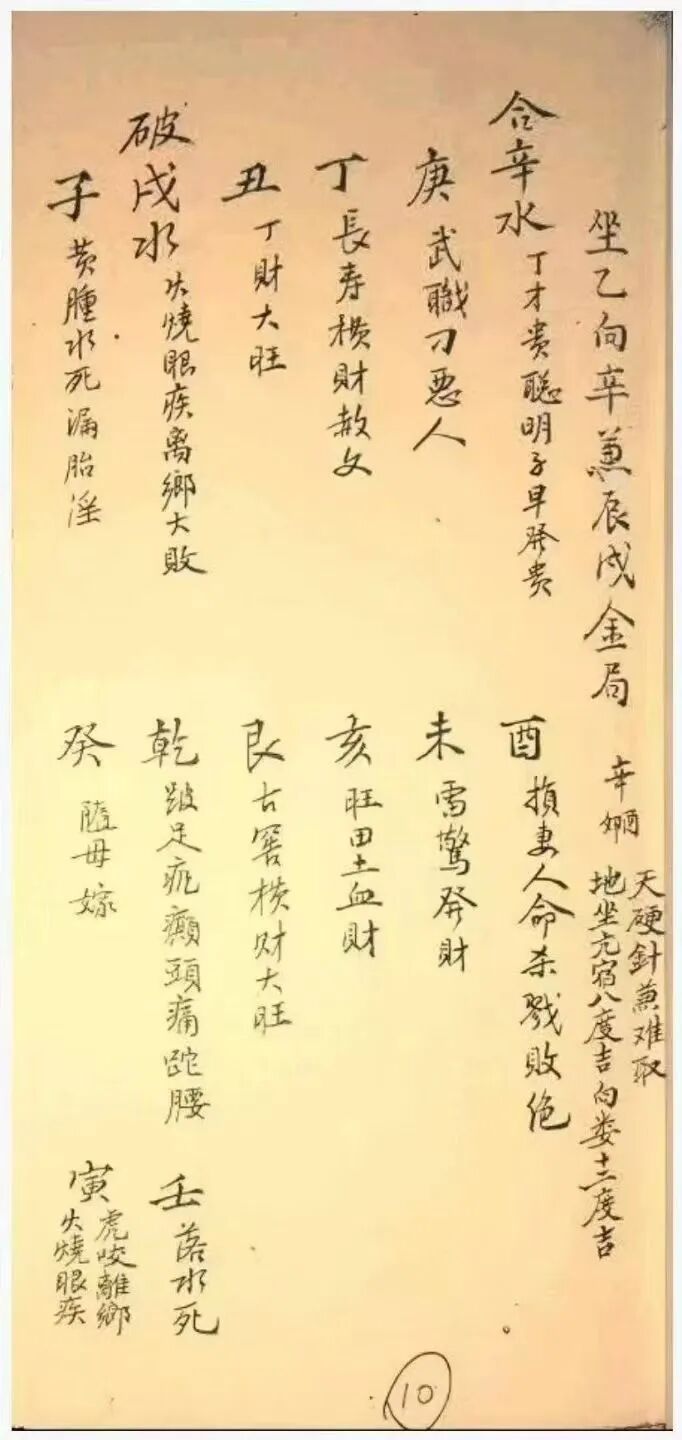 坐乙向辛兼辰戌金局
天硬針兼难取
地坐亢宿八度吉向娄十三度吉
合辛水 丁才贵聪明子早発贵
酉 損妻人命杀戮敗绝
庚 武職刁惡人
未 雷驚発财
丁 長寿横財赦文
亥 旺田土血財
丑 丁財大旺
艮 古窖横财大旺
破戌水 火燒眼疾离鄉大敗
乾 跛足疯癲頭痛跎腰
壬 落水死
子 黄腫水死漏胎淫
癸 隨母嫁
寅 虎咬離鄉
火燒眼疾
10